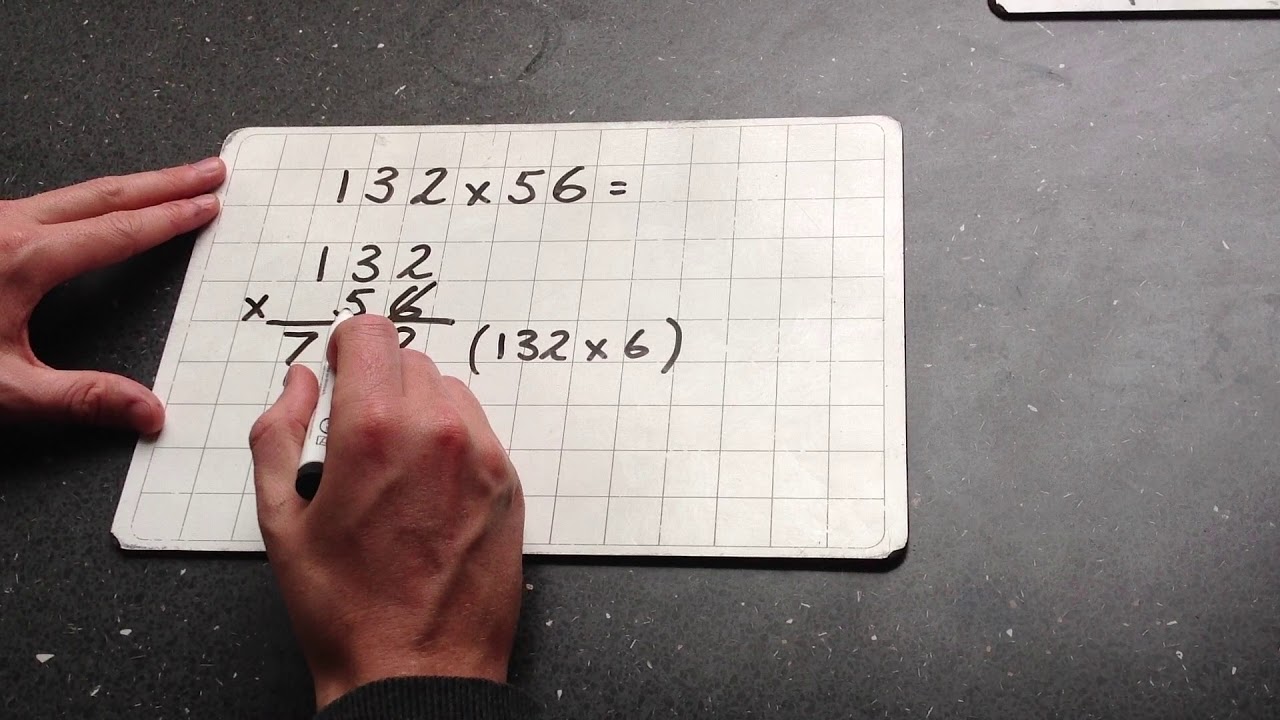 132 x 56 =
132
x 56
7 2 (132 x 6)